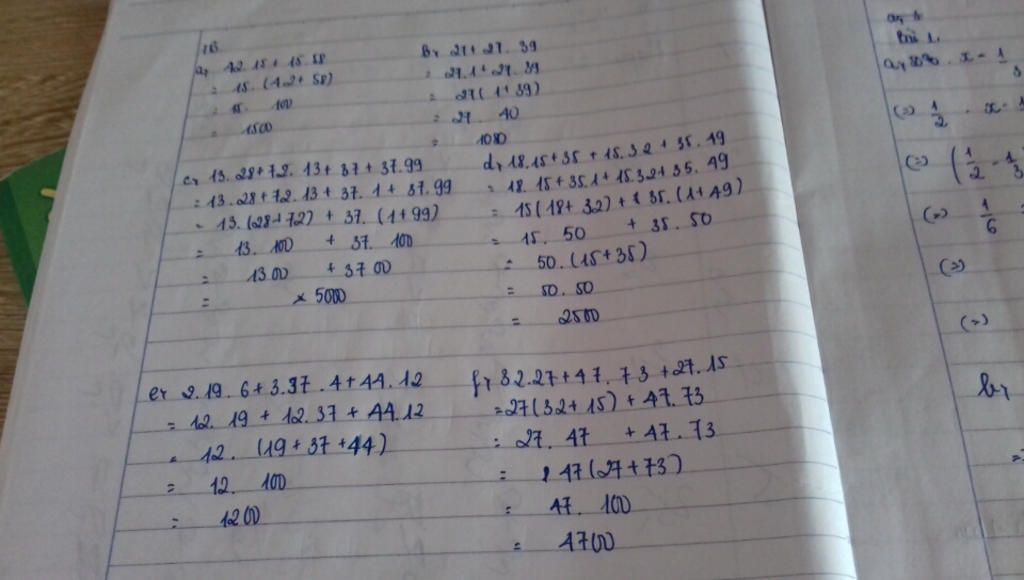 1B
a, 42.15 + 15.58
= 15. (42 + 58)
= 15. 100
= 1500
b, 27 + 27. 39
= 27.1 + 27. 39
= 27 (1 + 39)
= 27. 40
= 1080
c, 13. 28 + 72. 13 + 37 + 37.99
= 13. 28 + 72. 13 + 37. 1 + 37. 99
= 13. (28 + 72) + 37. (1 + 99)
= 13. 100 + 37. 100
= 1300 + 3700
= 5000
d, 18.15 + 35 + 15.32 + 35. 49
= 18. 15 + 35.1 + 15.32 + 35. 49
= 15 (18 + 32) + 35. (1 + 49)
= 15. 50 + 35. 50
= 50. (15 + 35)
= 50. 50
= 2500
e, 2.19. 6 + 3.37 .4 + 44. 12
= 12. 19 + 12. 37 + 44.12
= 12. (19 + 37 + 44)
= 12. 100
= 1200
f, 32.27 + 47. 73 + 27. 15
= 27 (32 + 15) + 47. 73
= 27. 47 + 47. 73
= 47 (27 + 73)
= 47. 100
= 4700
Bài 1.
(=) 1/2 . x =
(=) (1/2 - 1/3
(=) 1/6
(=)
(=)
b,